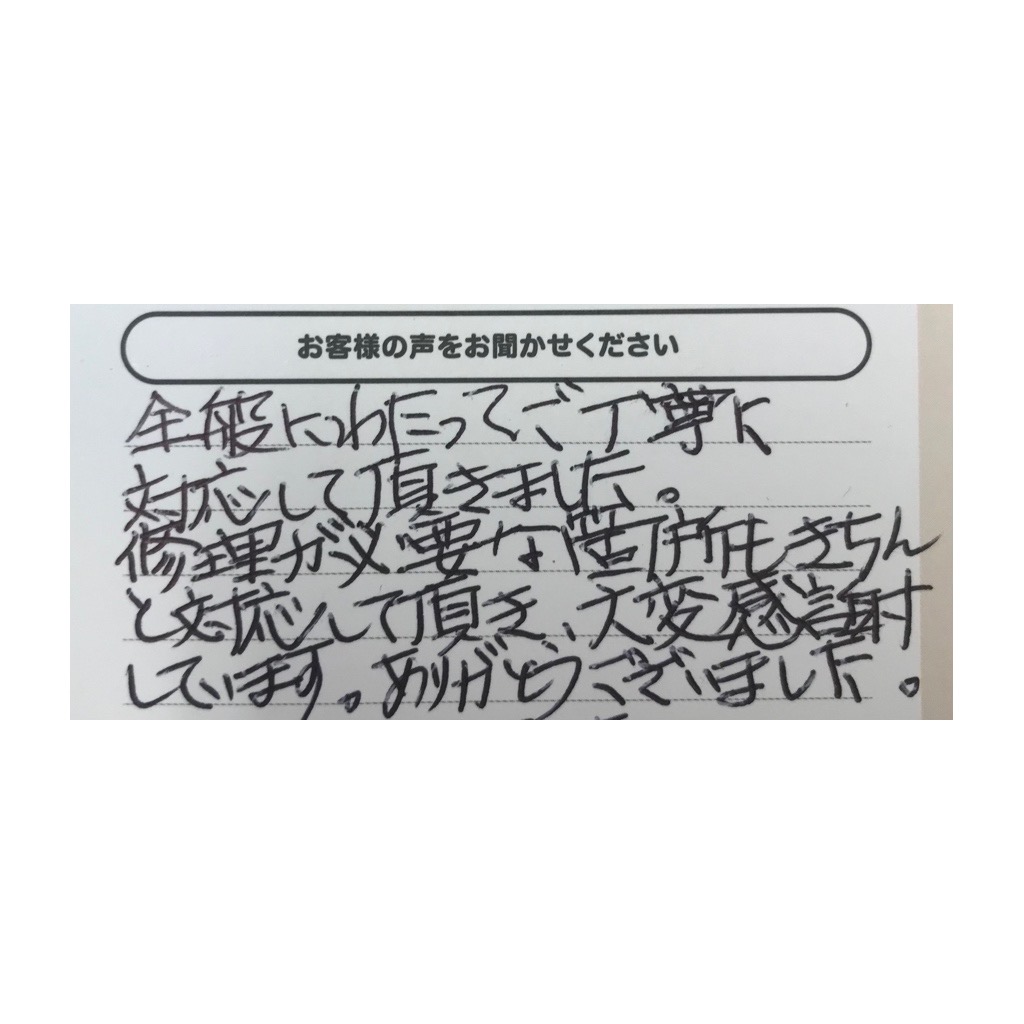 お客様の声をお聞かせください
全般にわたってご丁寧に
対応して頂きました。
修理が必要な箇所もきちん
と対応して頂き、大変感謝
しています。ありがとうございました。